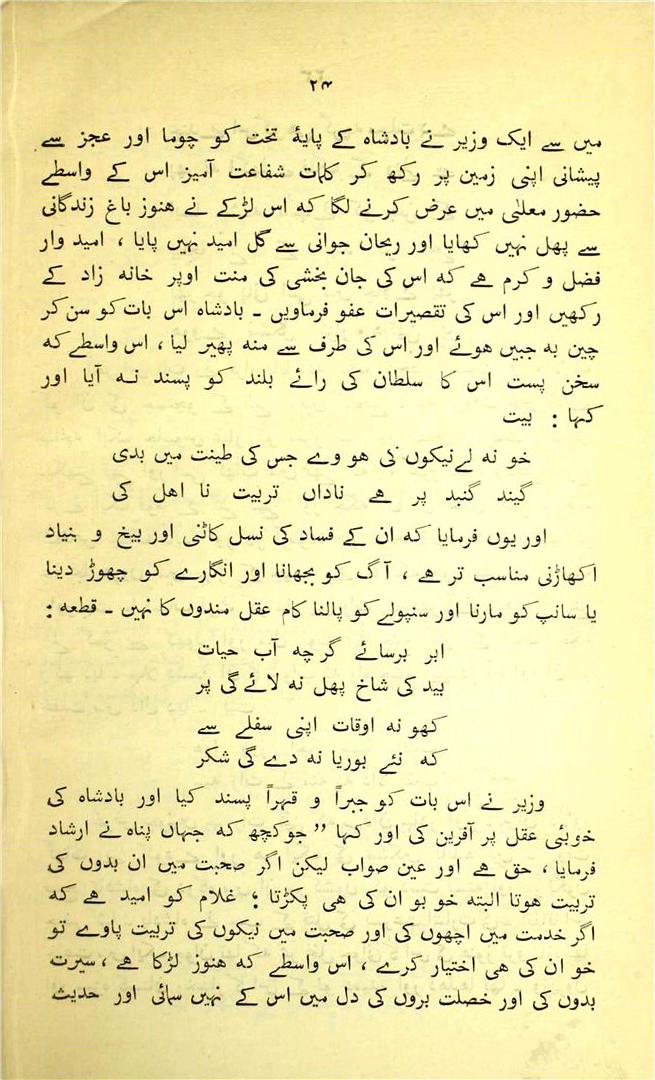 ۲۴
میں سے ایک وزیر نے بادشاہ کے پایۂ تخت کو چوما اور عجز سے
پیشانی اپنی زمین پر رکھ کر کلمات شفاعت آمیز اس کے واسطے
حضور معلیٰ میں عرض کرنے لگا کہ اس لڑکے نے ھنوز باغ زندگانی
سے پھل نہیں کھایا اور ریحان جوانی سے گل امید نہیں پایا ، امید وار
فضل و کرم ہے کہ اس کی جان بخشی کی منت اوپر خانہ زاد کے
رکھیں اور اس کی تقصیرات عفو فرماویں ۔ بادشاہ اس بات کو سن کر
چین بہ جبیں ھوئے اور اس کی طرف سے منہ پھیر لیا ، اس واسطے کہ
سخن پست اس کا سلطان کی رائے بلند کو پسند نہ آیا اور
کہا : بیت
خو نہ لے نیکوں کی ھو وے جس کی طینت میں بدی
گیند گنبد پر ہے ناداں تربیت نا اھل کی
اور یوں فرمایا کہ ان کے فساد کی نسل کاٹنی اور بیخ و بنیاد
اکھاڑنی مناسب تر ہے ، آگ کو بجھانا اور انگارے کو چھوڑ دینا
یا سانپ کو مارنا اور سنپولے کو پالنا کام عقل مندوں کا نہیں ۔ قطعہ :
ابر برسائے گر چہ آب حیات
بید کی شاخ پھل نہ لائے گی پر
کھو نہ اوقات اپنی سفلے سے
کہ نئے بوریا نہ دے گی شکر
وزیر نے اس بات کو جبراً و قہراً پسند کیا اور بادشاہ کی
خوبئی عقل پر آفرین کی اور کہا ”جو کچھ کہ جہاں پناہ نے ارشاد
فرمایا ، حق ہے اور عین صواب لیکن اگر صحبت میں ان بدوں کی
تربیت ھوتا البتہ خو بو ان کی ھی پکڑتا ؛ غلام کو امید ہے کہ
اگر خدمت میں اچھوں کی اور صحبت میں نیکوں کی تربیت پاوے تو
خو ان کی ھی اختیار کرے ، اس واسطے کہ ھنوز لڑکا ہے ، سیرت
بدوں کی اور خصلت بروں کی دل میں اس کے نہیں سمائی اور حدیث